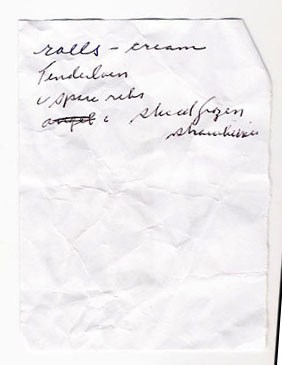 rolls - cream
Tenderloin
spare ribs
angel c sliced frozen
strawberries